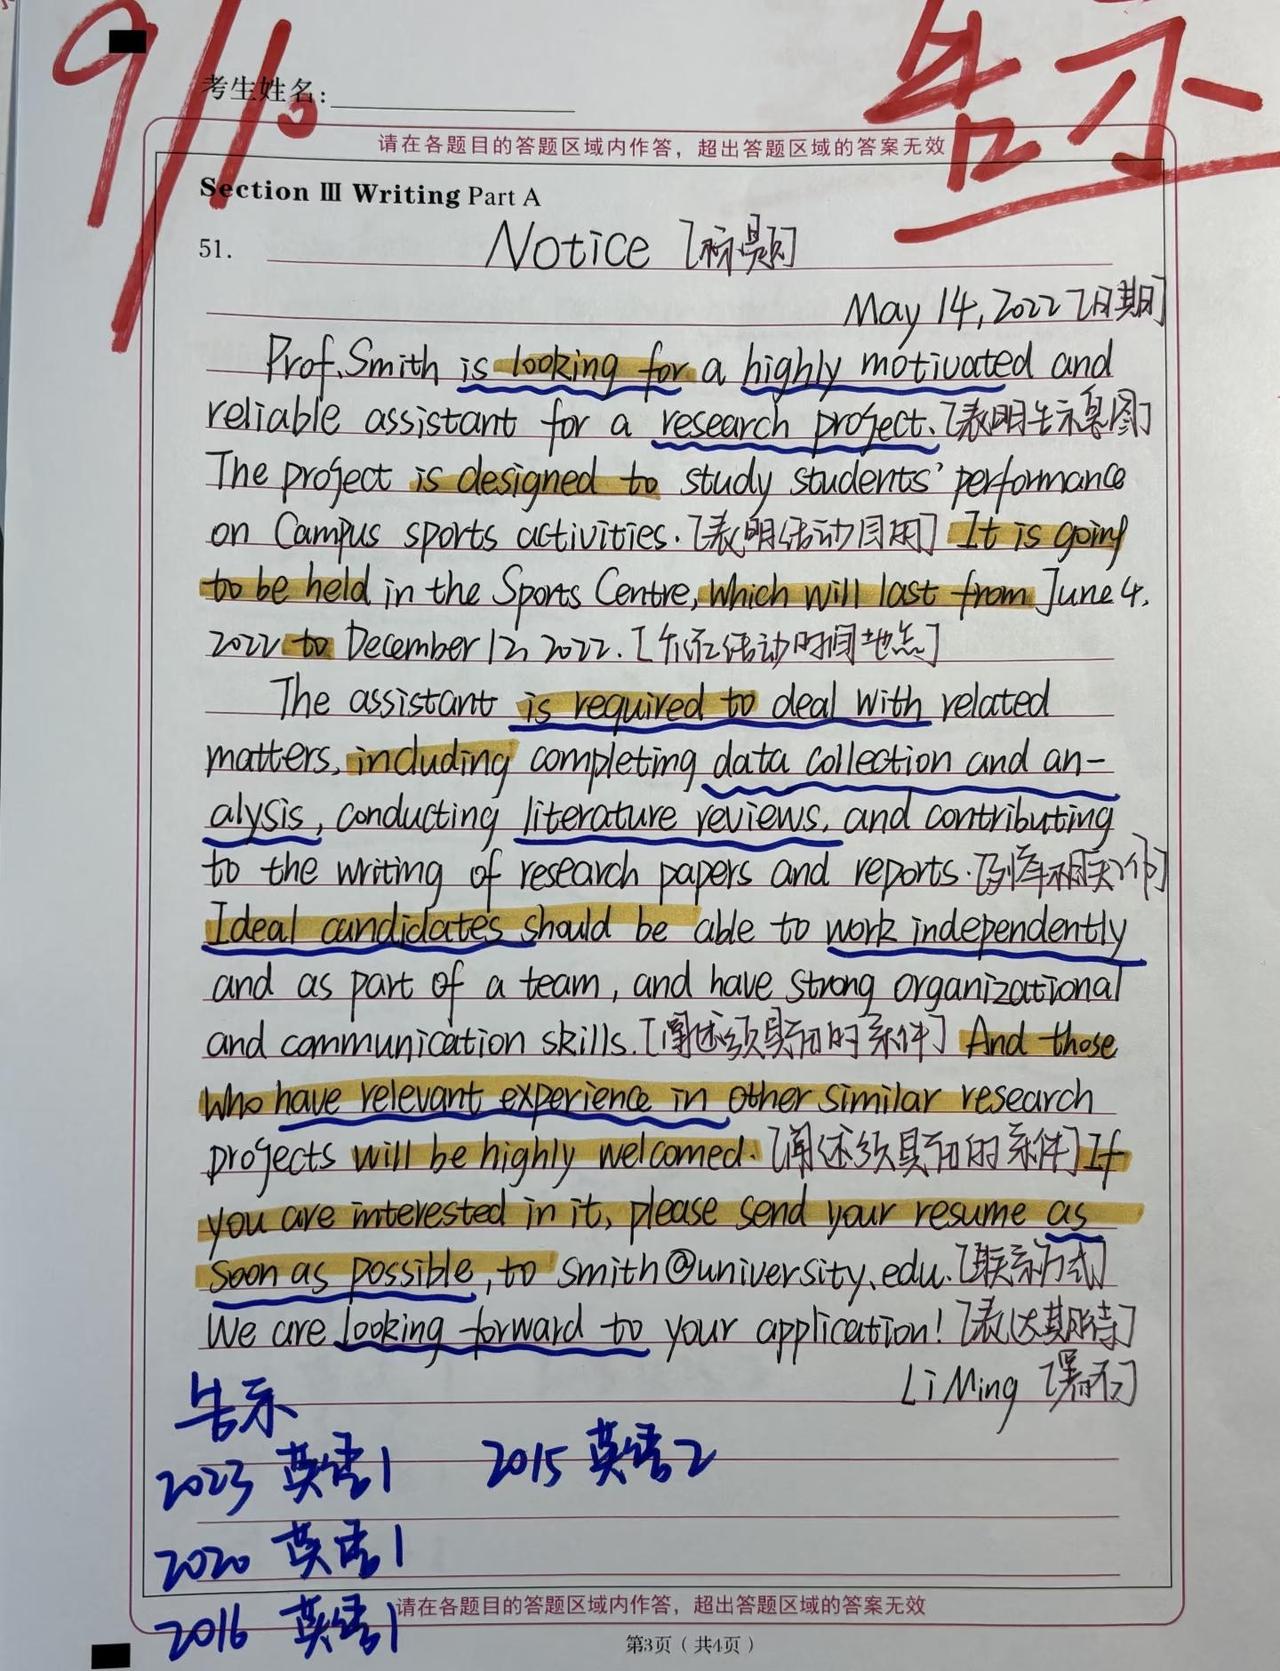 9/10
告示
考生姓名:
请在各题目的答题区域内作答，超出答题区域的答案无效
Section III Writing Part A
51.
Notice [标题]
May 14, 2022 [日期]
Prof. Smith is looking for a highly motivated and
reliable assistant for a research project. [表明告示意图]
The project is designed to study students' performance
on Campus sports activities. [表明活动目的] It is going
to be held in the Sports Centre, which will last from June 4,
2022 to December 12, 2022. [介绍活动时间地点]
The assistant is required to deal with related
matters, including completing data collection and an-
alysis, conducting literature reviews, and contributing
to the writing of research papers and reports. [列举相关工作]
Ideal candidates should be able to work independently
and as part of a team, and have strong organizational
and communication skills. [阐述须具备的条件] And those
who have relevant experience in other similar research
projects will be highly welcomed. [阐述须具备的条件] If
you are interested in it, please send your resume as
soon as possible, to smith@university.edu. [联系方式]
We are looking forward to your application! [表达期待]
Li Ming [署名]
告示
2023 英语1 2015 英语2
2020 英语1
2016 英语1
请在各题目的答题区域内作答，超出答题区域的答案无效
第3页（共4页）